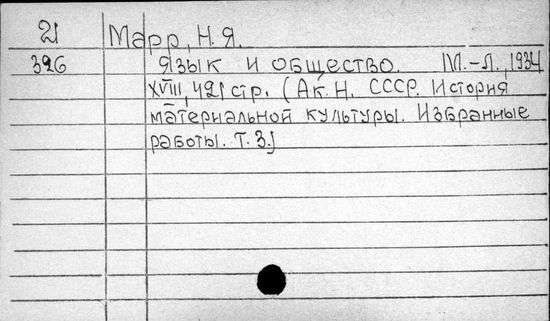 Марр, Н. Я.
326 Язык и общество. М.-Л., 1934
XVIII, 421 стр. (Ак. Н. СССР. История
материальной культуры. Избранные
работы. Т. 3.)